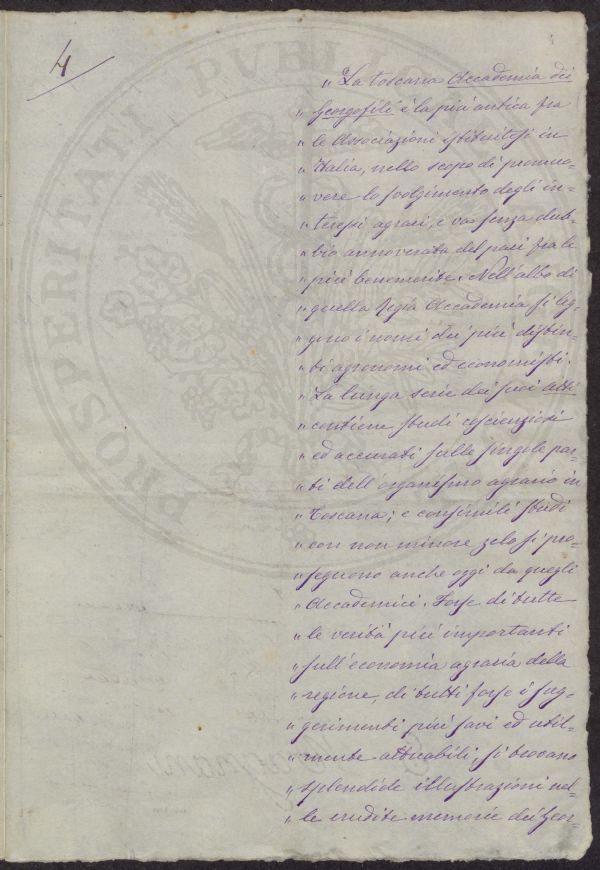 4
„ La toscana Accademia dei
„ Georgofili è la più antica fra
„ le Associazioni istituitesi in
„ Italia, nello scopo di promuo=
„ vere lo svolgimento degli in=
„ teressi agrari, e va senza dub=
„ bio annoverata del pari fra le
„ più benemerite. Nell'albo di
„ quella Regia Accademia si leg=
„ gono i nomi dei più distin=
„ ti agronomi ed economisti.
„ La lunga serie dei suoi atti
„ contiene studi coscienziosi
„ ed accurati sulle singole par=
„ ti dell'organismo agrario in
„ Toscana; e consimili studi
„ con non minore zelo si pro=
„ seguono anche oggi da quegli
„ Accademici. Forse di tutte
„ le verità più importanti
„ sull'economia agraria della
„ regione, di tutti forse i sug=
„ gerimenti più savi ed util=
„ mente attuabili, si trovano
„ splendide illustrazioni nel=
„ le erudite memorie dei Geor=
PROSPERITATI PVBLICAE